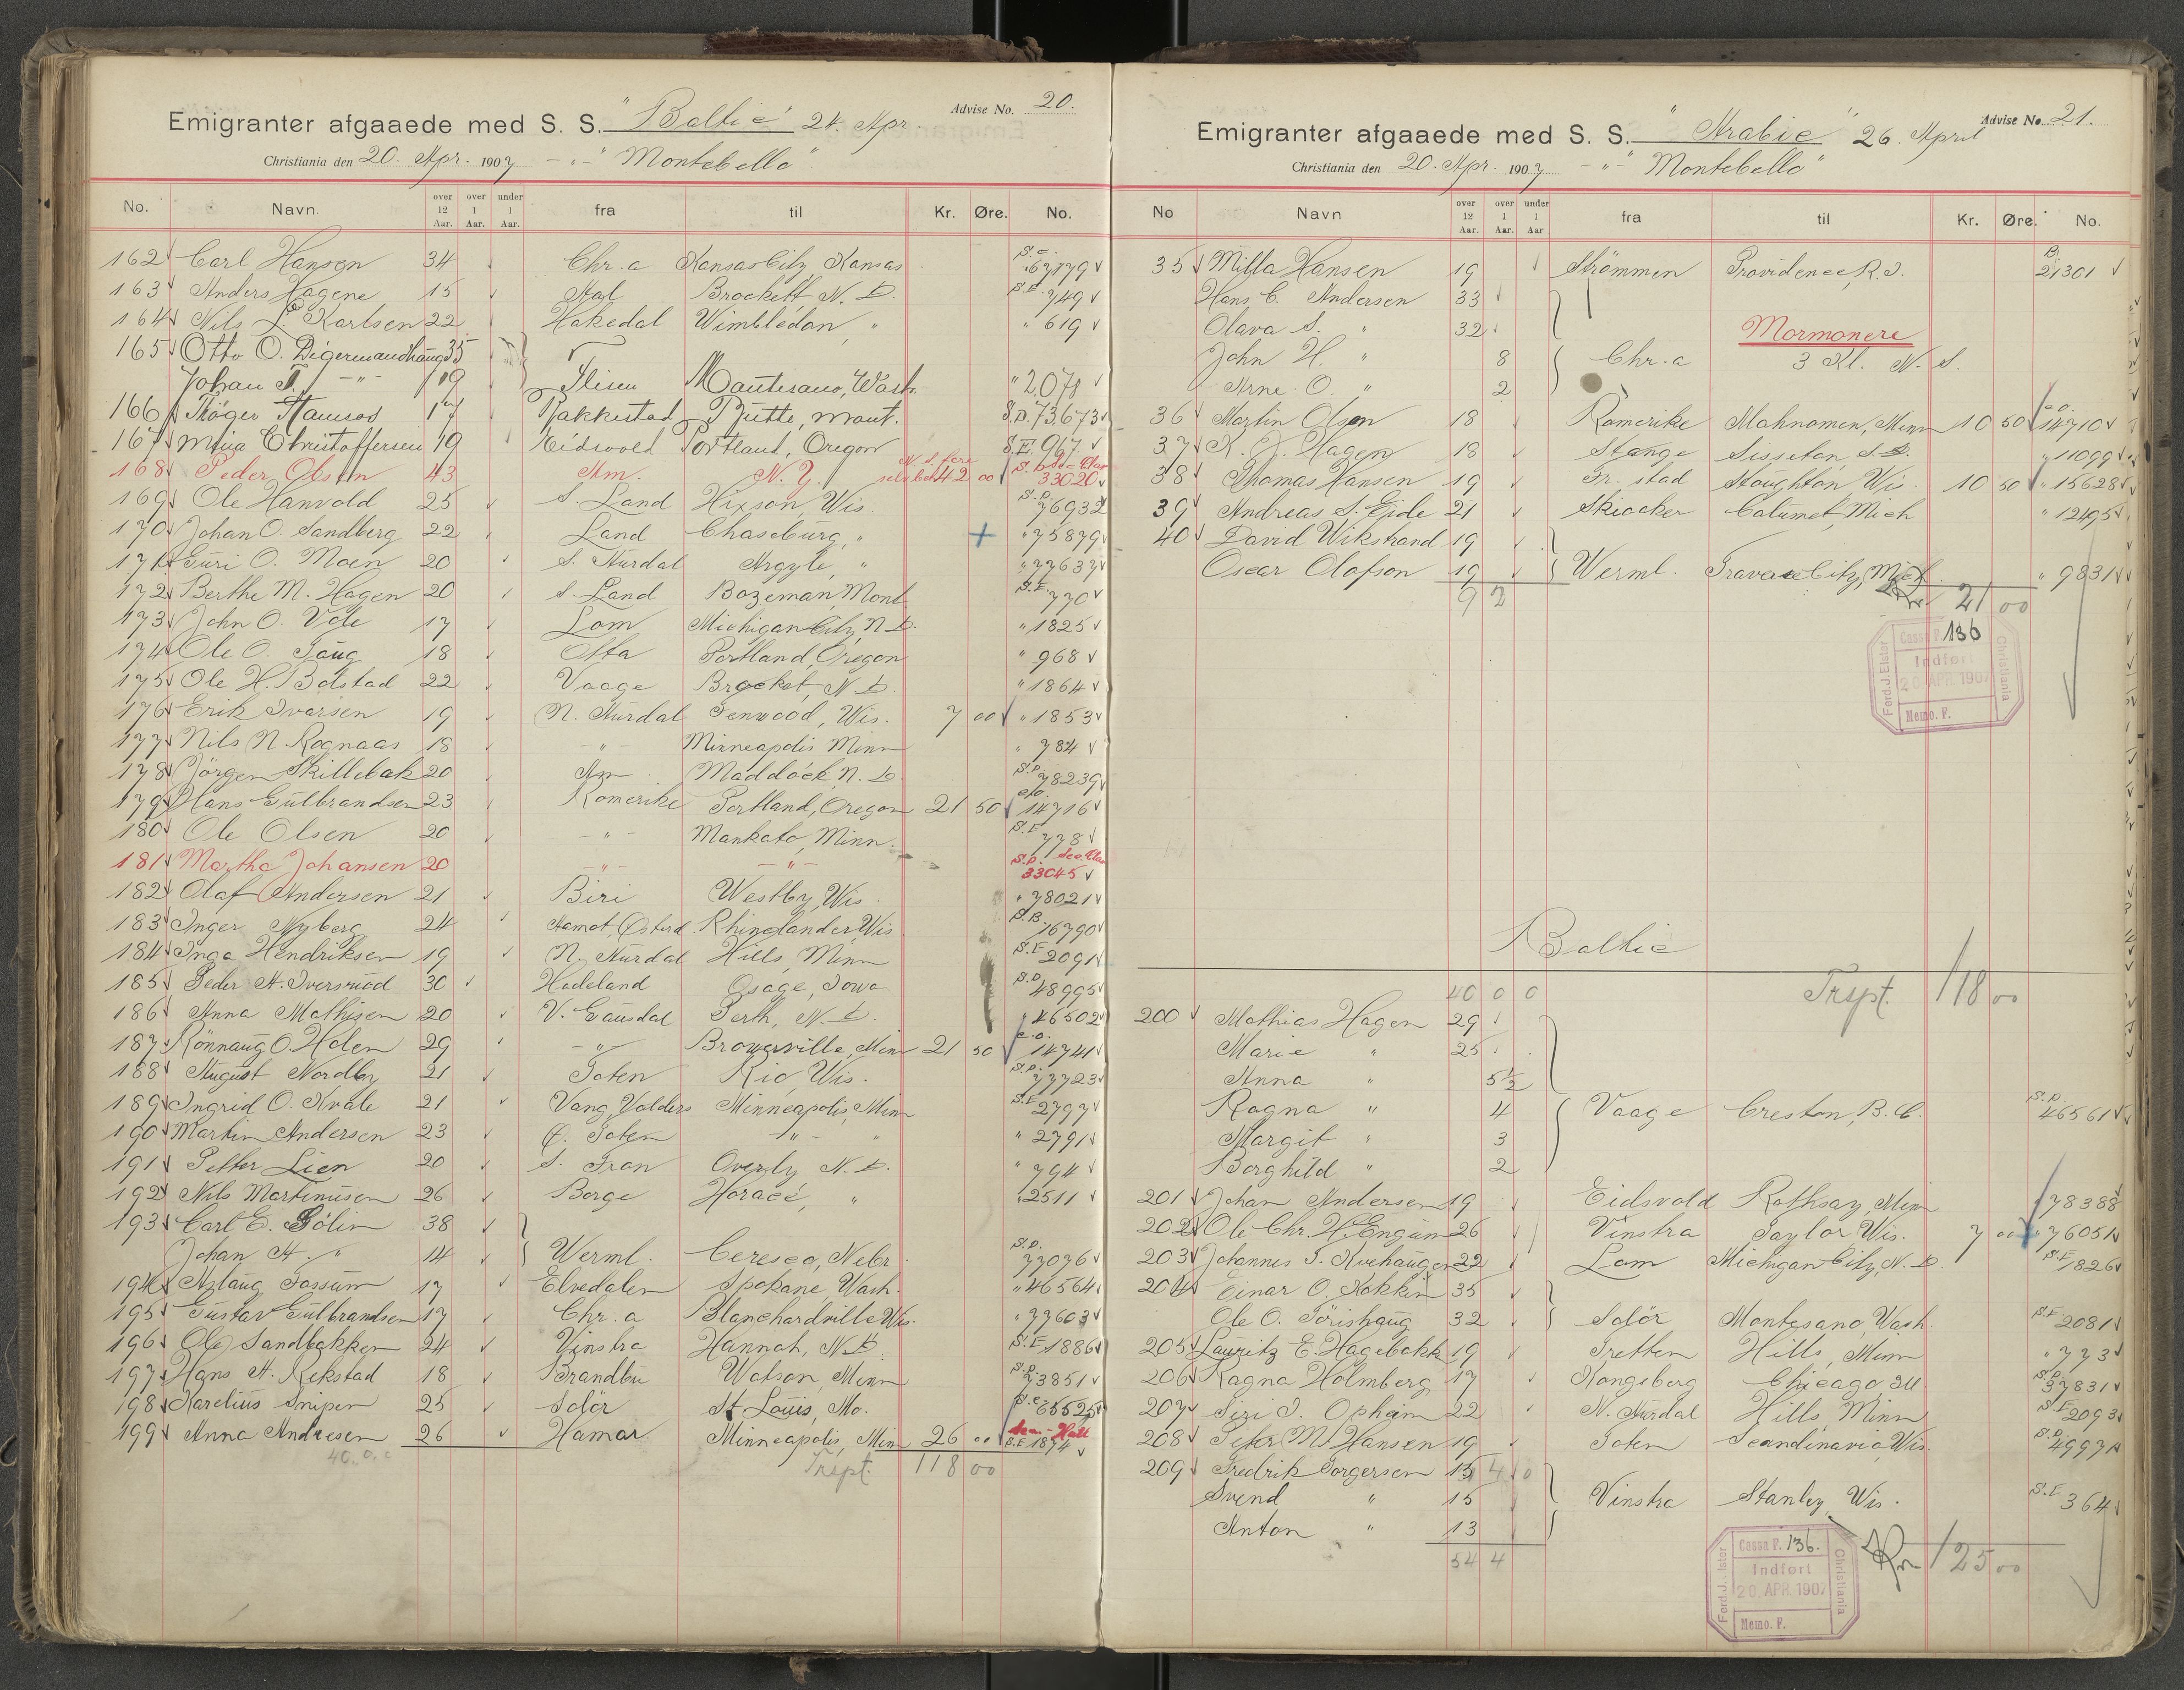 Advise No. 20.
Emigranter afgaaede med S. S. "Baltic" 24. Apr.
Christiania den 20. Apr. 1907 - " - "Montebello"
No. Navn. over 12 Aar. over 1 Aar. under 1 Aar. fra til Kr. Øre. No.
162 Carl Hansen 34 Chr.a Kansas City, Kansas
163 Anders Hagene 15 Aal Brockett N. D. S.E. 749
164 Nils L. Karlsen 22 Hakedal Wimbledon, " " 619
165 Otto O. Digermandhaug 35
Johan T. - " - 19 Flisen Montesano, Wash. " 2071
166 17 Rakkestad Butte, Mont. S.P. 73673
167 Mina Christoffersen 19 Eidsvold Portland, Oregon S.E. 967
168 Peder Olsen 43 Am. N. Y. 42 00 33020
169 Ole Hanvold 25 S. Land Hixson, Wis. S.P. 76932
170 Johan O. Sandberg 22 Land Chaseburg, " + " 75879
171 Guri O. Moen 20 S. Aurdal Argyle, " " 77637
172 Berthe M. Hagen 20 S. Land Bozeman, Mont. S.E. 770
173 John O. Vole 17 Lom Michigan City, N. D. " 1825
174 Ole O. Taug 18 Otta Portland, Oregon " 968
175 Ole H. Bolstad 22 Vaage Brocket, N. D. " 1864
176 Erik Ivarsen 19 N. Aurdal Genwood, Wis. 7 00 " 1853
177 Nils N. Rognaas 18 - " - Minneapolis Minn " 784
178 Jörgen Skillebak 20 Am Maddock, N. D. S.P. 78239
179 Hans Gulbrandsen 23 Romerike Portland, Oregon 21 50 e.o. 14716
180 Ole Olsen 20 - " - Mankato, Minn. S.E. 778
181 Martha Johansen 20 - " - - " - S.P. 33045
182 Olaf Andersen 21 Biri Westby, Wis. " 78021
183 Inger Nyberg 24 Aamot, Østerd. Rhinelander Wis S.B. 16790
184 Inga Hendriksen 19 N. Aurdal Hills, Minn S.E. 2091
185 Peder A. Iversrud 30 Hadeland Osage, Iowa S.P. 48995
186 Anna Mathisen 20 V. Gausdal Perth, N. D. " 46502
187 Rönnaug O. Holen 29 - " - Browerville, Minn 21 50 e.o. 14741
188 August Nordby 21 Toten Rio, Wis. S.P. 77723
189 Ingrid O. Kvale 21 Vang, Valders Minneapolis, Minn S.E. 2797
190 Martin Andersen 23 Ø. Toten - " - " " 2791
191 Petter Lien 20 S. Fron Overly N. D. " 794
192 Nils Martinusen 26 Borge Horace, " " 2511
193 Carl E. Sölin 38
Johan A. " 14 Werml. Ceresco, Nebr. S.P. 77076
194 Aslaug Fossum 17 Elvedalen Spokane Wash. " 46564
195 Gustav Gulbrandsen 17 Chr.a Blanchardville Wis. " 77603
196 Ole Sandbakken 24 Vinstra Hannah, N. D. S.E. 1886
197 Hans A. Rekstad 18 Brandbu Watson, Minn S.P. 73851
198 Karelius Snipen 25 Solör St. Louis, Mo. 65525
199 Anna Andresen 26 Hamar Minneapolis, Minn 26 00 S.E. 1874
40. 0. 0 Trspt. 118 00
Advise No. 21.
Emigranter afgaaede med S. S. "Arabic" 26. April
Christiania den 20. Apr. 1907 - " - "Montebello"
No Navn over 12 Aar. over 1 Aar. under 1 Aar fra til Kr. Øre. No.
35 Milla Hansen 19 Strömmen Providence, R. I. B. 21301
Hans C. Andersen 33
Olava S. " 32 Mormonere
John H. " 8 Chr.a 3 Kl. N. S.
Arne O. " 2
36 Martin Olsen 18 Romerike Mahnomen, Minn 10 50 e.o. 14710
37 K. J. Hagen 18 Stange Sisseton S. D. " 11099
38 Thomas Hansen 19 Fr. stad Stoughton Wis 10 50 " 15628
39 Andreas S. Eide 21 Skiaaker Calumet, Mich " 12495
40 David Wikstrand 19
Oscar Olofson 19 Werml. Traverse City, Mich. " 9831
9 2 Kr 21 00
Cassa F. 136
Indført
20. APR. 1907
Memo. F.
Ferd. J. Elster
Christiania
Baltic
40 0 0 Trspt. 118 00
200 Mathias Hagen 29
Marie " 25
Anna " 5½
Ragna " 4 Vaage Creston, B. C. S.P. 46561
Margit " 3
Borghild " 2
201 Johan Andersen 19 Eidsvold Rothsay, Minn " 78388
202 Ole Chr. H. Engum 26 Vinstra Taylor Wis. 7 00 " 76051
203 Johannes 22 Lom Michigan City, N. D. S.E. 1826
204 Einar O. Kokkin 35
Ole O. Törishaug 32 Solör Montesano, Wash. S.E. 2081
205 Lauritz E. Hagebakk 19 Tretten Hills, Minn " 773
206 Ragna Holmberg 17 Kongsberg Chicago, Ill S.P. 37831
207 Siri I. Opheim 22 N. Aurdal Hills Minn S.E. 2093
208 Peter M. Hansen 19 Toten Scandinavia, Wis. S.P. 49971
209 Fredrik Torgersen 15
Svend " 15 Vinstra Stanley, Wis. S.E. 364
Anton " 13
54 4 Kr 125 00
Cassa F. 136.
Indført
20. APR. 1907
Memo. F.
Ferd. J. Elster
Christiania